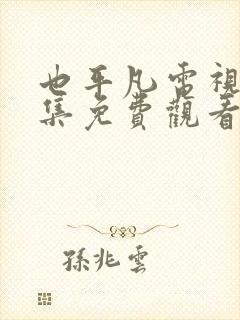 也平凡電視
集免費觀看
孫兆雲